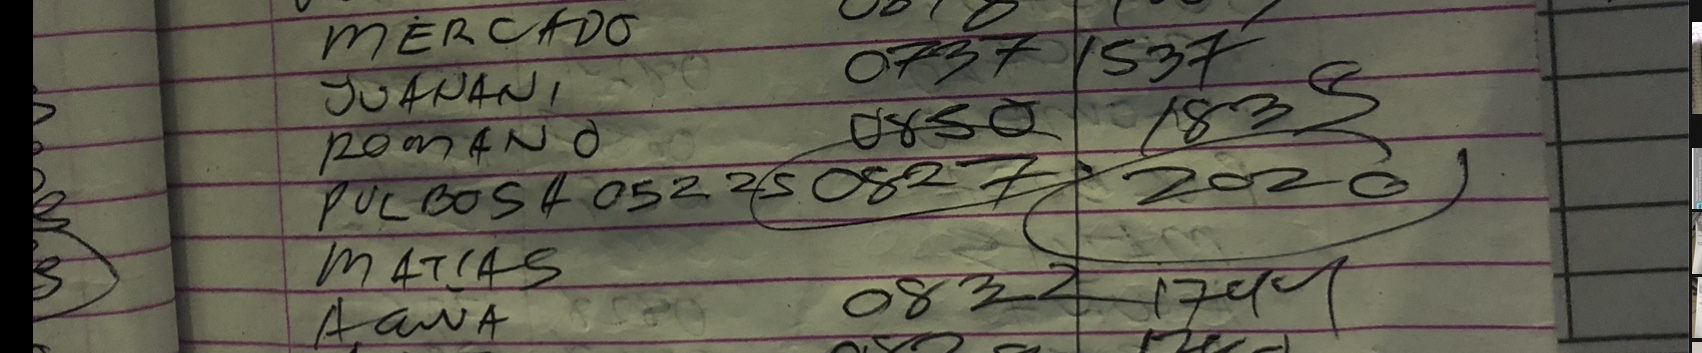 MERCADO
JUANANI 0737 1537
ROMANO 0850 1835
PULBOSA 05225 0827 2020
MATIAS
0832 1744